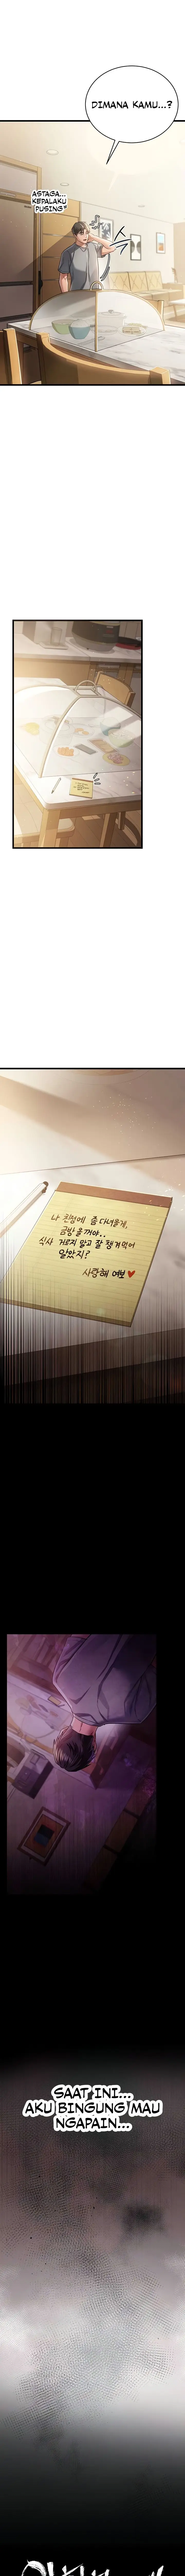 DIMANA KAMU...?
ASTAGA...
KEPALAKU
PUSING
나 친정에 좀 다녀올게.
금방 올꺼야..
식사 거르지 말고 잘 챙겨먹어
알았지?
사랑해 여보♥
SAAT INI...
AKU BINGUNG MAU
NGAPAIN...